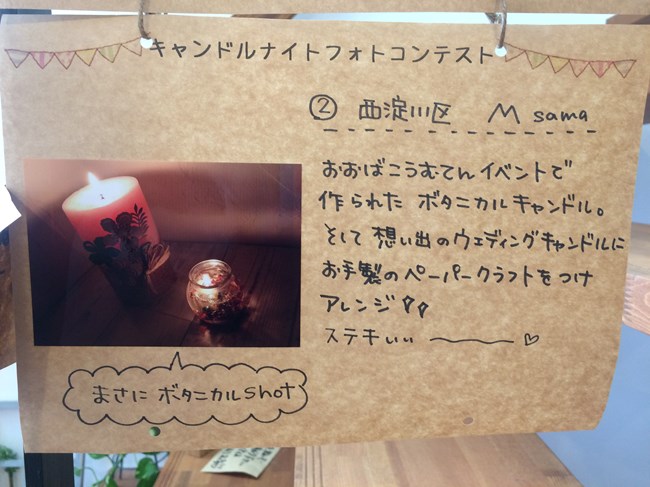 キャンドルナイトフォトコンテスト
② 西淀川区 M sama
おおばこうむてんイベントで
作られた ボタニカルキャンドル。
そして 想い出のウェディングキャンドルに
お手製のペーパークラフトをつけ
アレンジ!!
ステキぃぃ〜♡
まさに ボタニカルshot